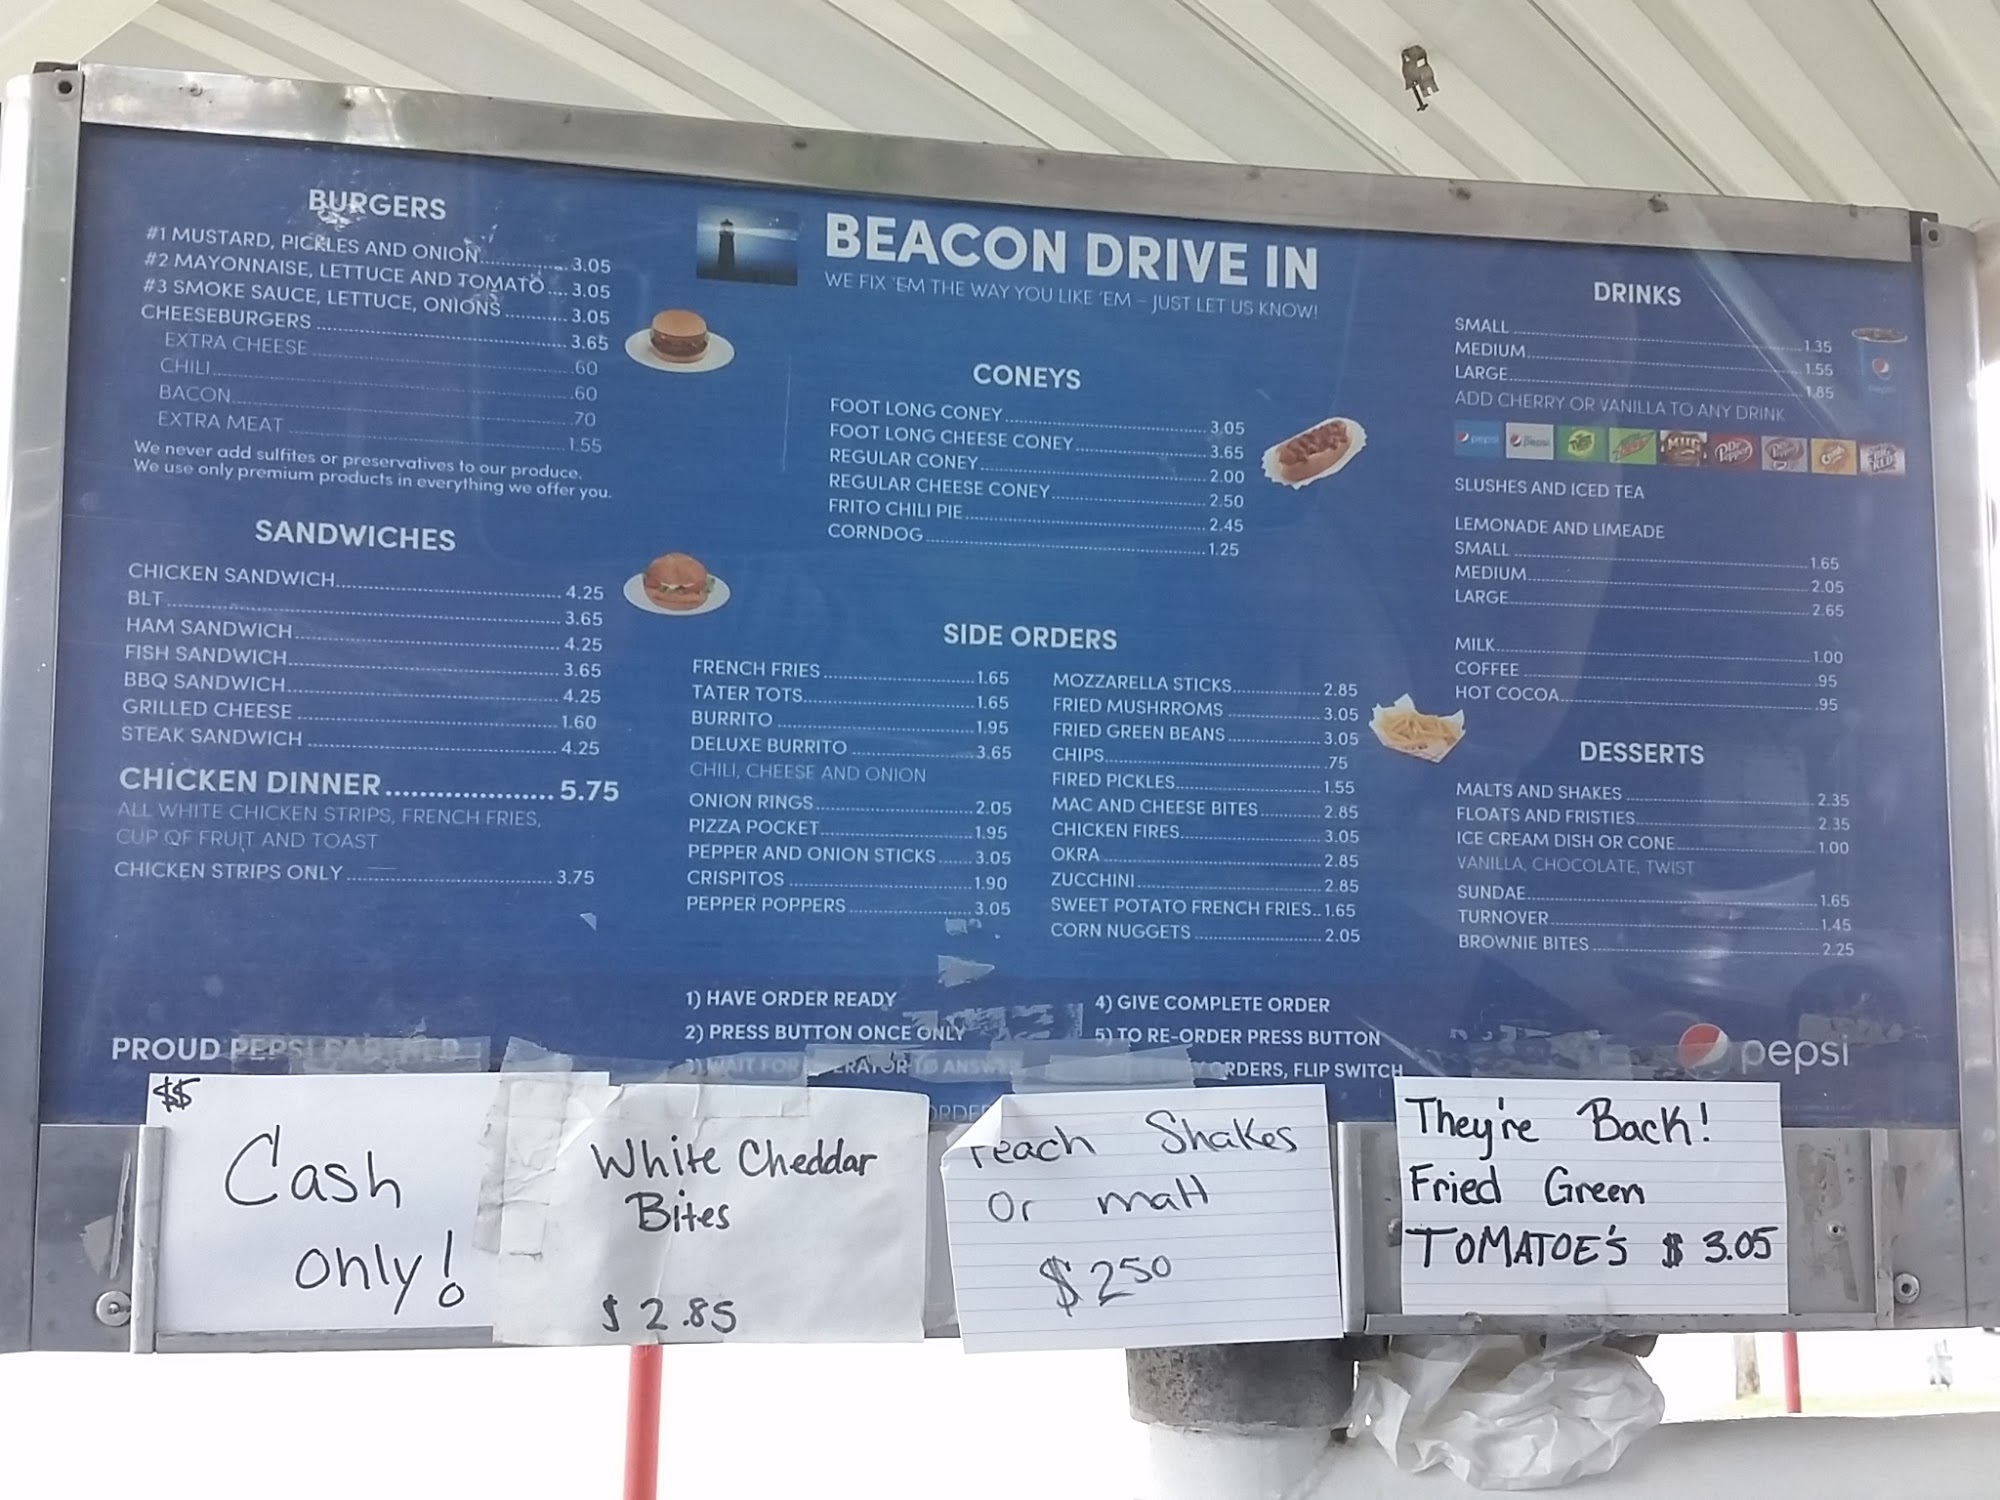 BURGERS
#1 MUSTARD, PICKLES AND ONION 3.05
#2 MAYONNAISE, LETTUCE AND TOMATO 3.05
#3 SMOKE SAUCE, LETTUCE, ONIONS 3.05
CHEESEBURGERS 3.65
EXTRA CHEESE .60
CHILI .60
BACON .70
EXTRA MEAT 1.55
We never add sulfites or preservatives to our produce.
We use only premium products in everything we offer you.
SANDWICHES
CHICKEN SANDWICH 4.25
BLT 3.65
HAM SANDWICH 4.25
FISH SANDWICH 3.65
BBQ SANDWICH 4.25
GRILLED CHEESE 1.60
STEAK SANDWICH 4.25
CHICKEN DINNER 5.75
ALL WHITE CHICKEN STRIPS, FRENCH FRIES,
CUP OF FRUIT AND TOAST
CHICKEN STRIPS ONLY 3.75
PROUD PEPSI PARTNER
BEACON DRIVE IN
WE FIX 'EM THE WAY YOU LIKE 'EM – JUST LET US KNOW!
CONEYS
FOOT LONG CONEY 3.05
FOOT LONG CHEESE CONEY 3.65
REGULAR CONEY 2.00
REGULAR CHEESE CONEY 2.50
FRITO CHILI PIE 2.45
CORNDOG 1.25
SIDE ORDERS
FRENCH FRIES 1.65
TATER TOTS 1.65
BURRITO 1.95
DELUXE BURRITO 3.65
CHILI, CHEESE AND ONION
ONION RINGS 2.05
PIZZA POCKET 1.95
PEPPER AND ONION STICKS 3.05
CRISPITOS 1.90
PEPPER POPPERS 3.05
MOZZARELLA STICKS 2.85
FRIED MUSHRROMS 3.05
FRIED GREEN BEANS 3.05
CHIPS .75
FIRED PICKLES 1.55
MAC AND CHEESE BITES 2.85
CHICKEN FIRES 3.05
OKRA 2.85
ZUCCHINI 2.85
SWEET POTATO FRENCH FRIES 1.65
CORN NUGGETS 2.05
1) HAVE ORDER READY
2) PRESS BUTTON ONCE ONLY
3) WAIT FOR OPERATOR TO ANSWER
4) GIVE COMPLETE ORDER
5) TO RE-ORDER PRESS BUTTON
ORDERS, FLIP SWITCH
DRINKS
SMALL 1.35
MEDIUM 1.55
LARGE 1.85
ADD CHERRY OR VANILLA TO ANY DRINK
pepsi pepsi MUG Dr Pepper Dr Pepper Crush BIG RED
SLUSHES AND ICED TEA
LEMONADE AND LIMEADE
SMALL 1.65
MEDIUM 2.05
LARGE 2.65
MILK 1.00
COFFEE .95
HOT COCOA .95
DESSERTS
MALTS AND SHAKES 2.35
FLOATS AND FRISTIES 2.35
ICE CREAM DISH OR CONE 1.00
VANILLA, CHOCOLATE, TWIST
SUNDAE 1.65
TURNOVER 1.45
BROWNIE BITES 2.25
pepsi
$$
Cash
only!
White Cheddar
Bites
$ 2.85
Peach Shakes
Or malt
$2.50
They're Back!
Fried Green
TOMATOE'S $ 3.05